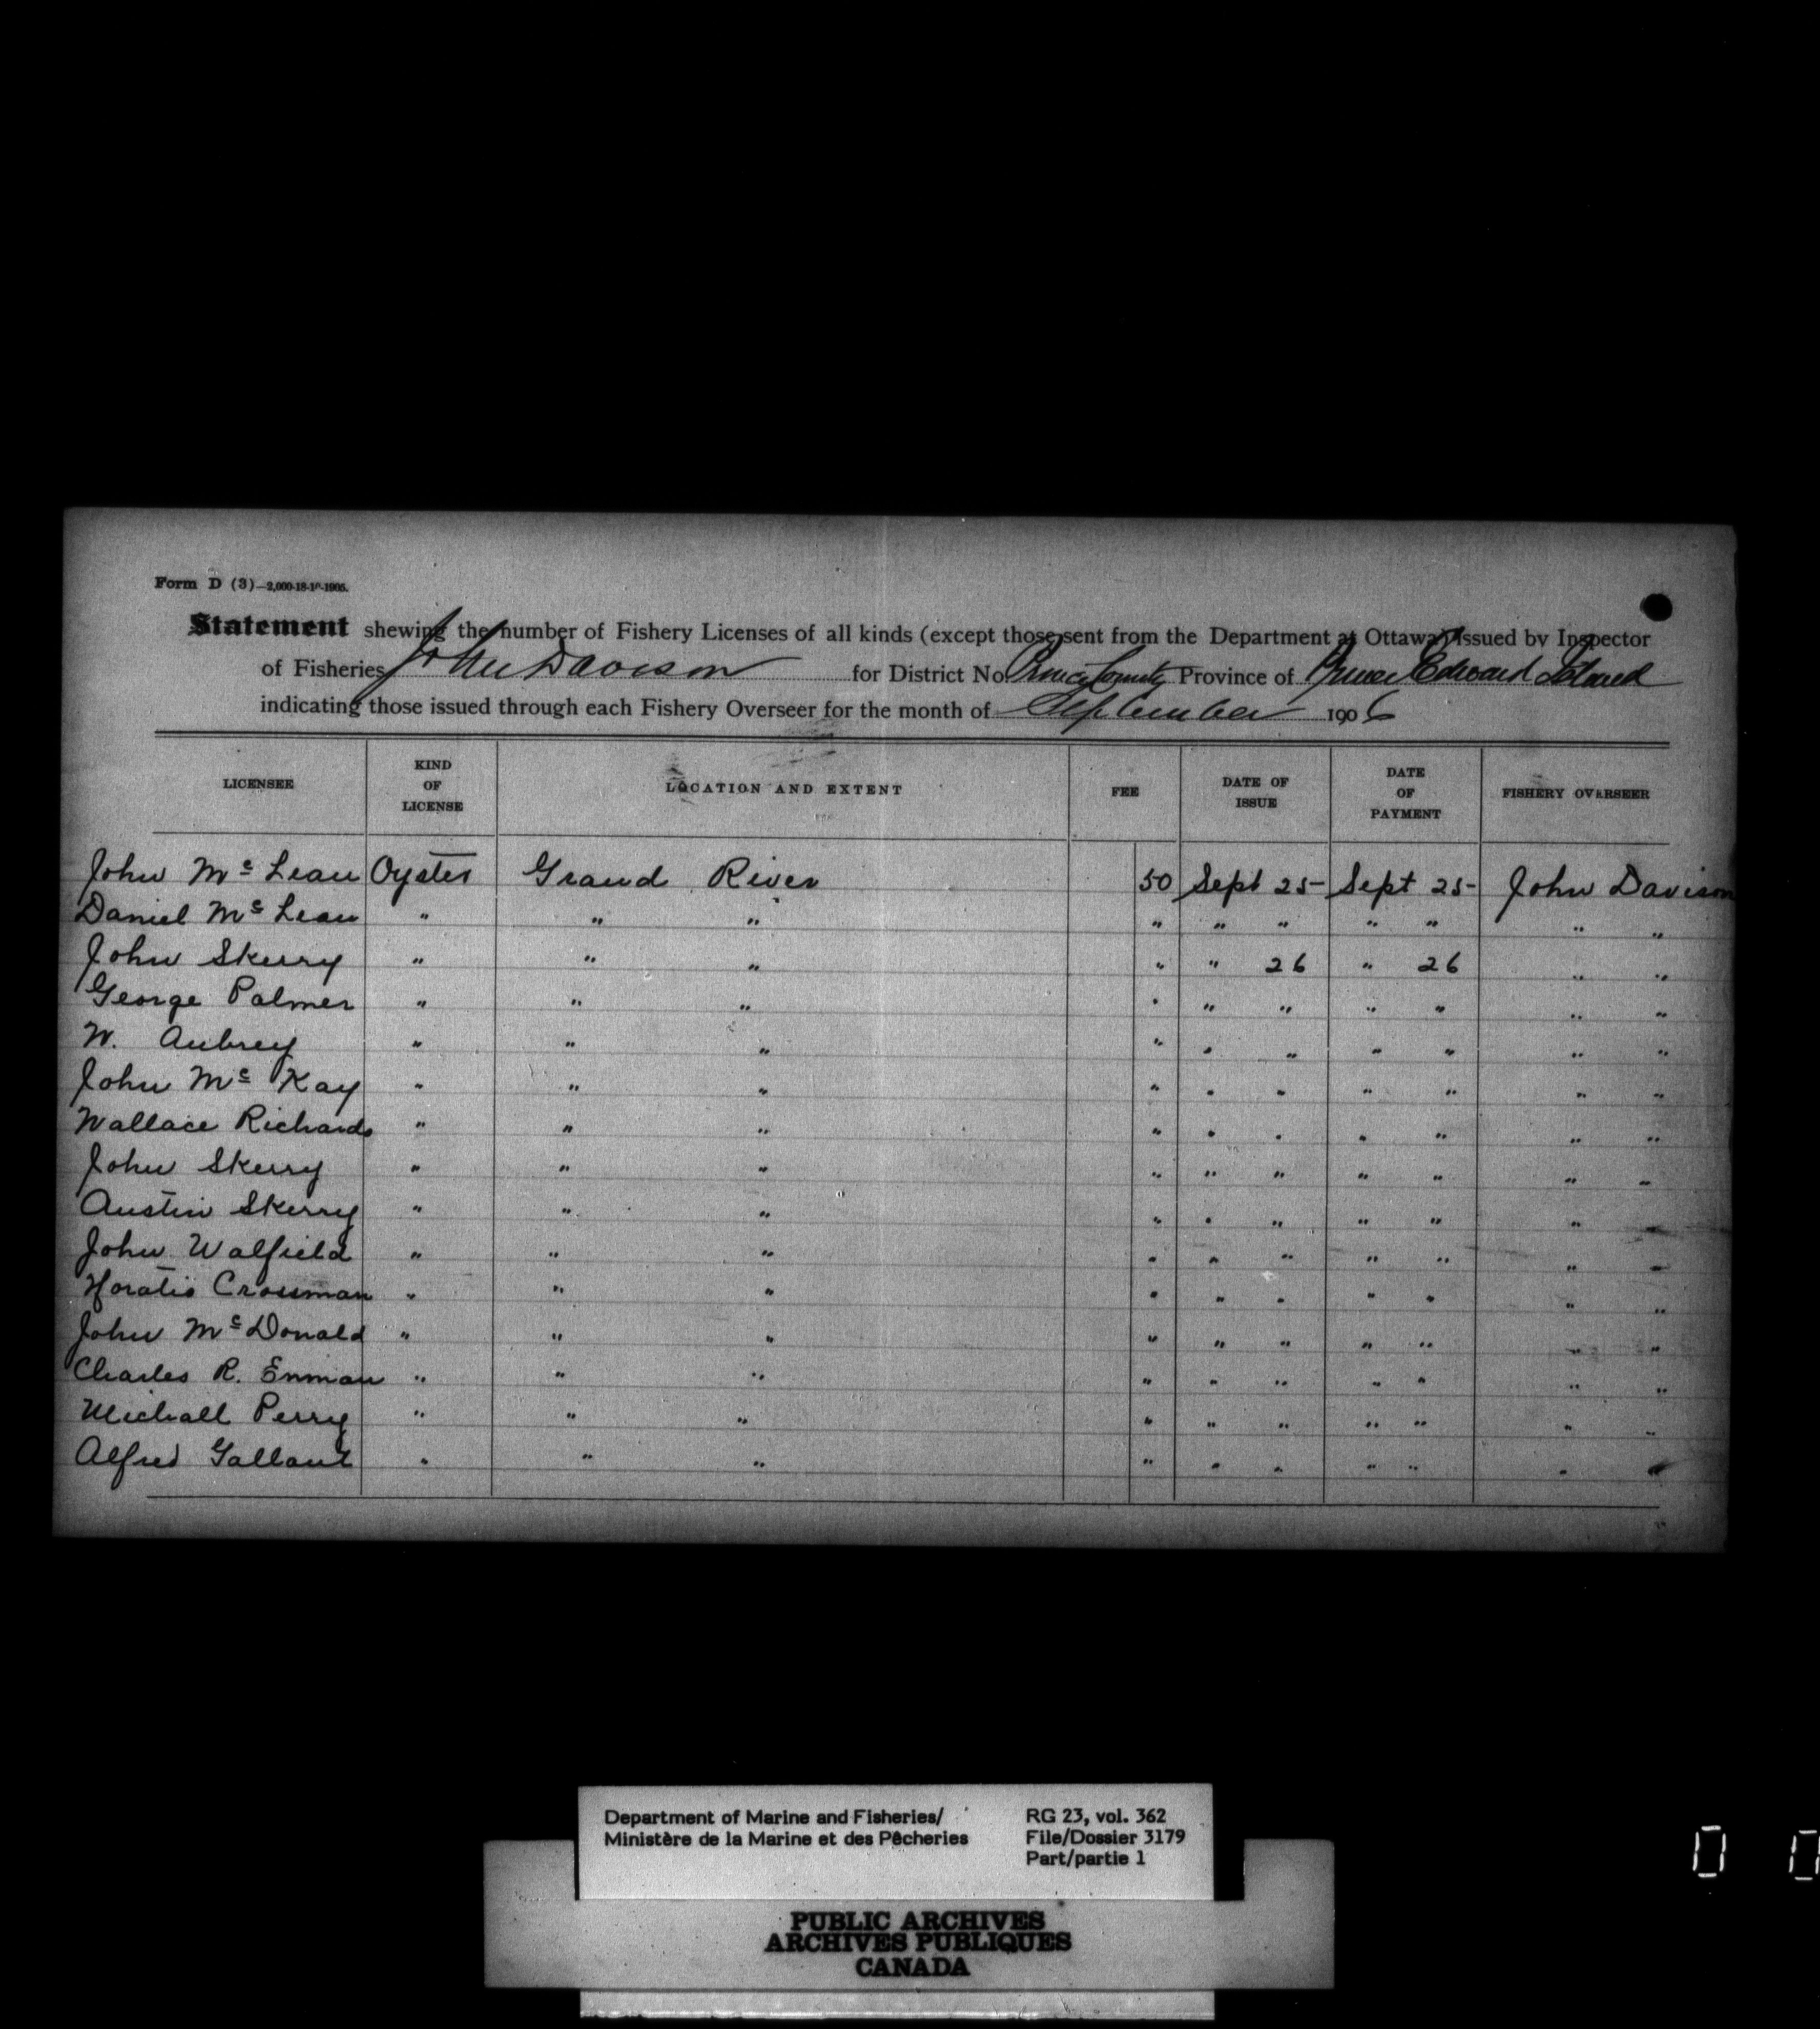 Form D (3)—2,000-18-10-1905.
Statement shewing the number of Fishery Licenses of all kinds (except those sent from the Department at Ottawa) issued by Inspector
of Fisheries John Davison for District No Prince County Province of Prince Edward Island
indicating those issued through each Fishery Overseer for the month of September 1906
LICENSEE KIND OF LICENSE LOCATION AND EXTENT FEE DATE OF ISSUE DATE OF PAYMENT FISHERY OVERSEER
John Mc Lean Oyster Grand River 50 Sept 25 Sept 25 John Davison
Daniel Mc Lean " " " " " " " " " "
John Skerry " " " " " 26 " 26 " "
George Palmer " " " " " " " " " "
W. Aubrey " " " " " " " " " "
John Mc Kay " " " " " " " " " "
Wallace Richards " " " " " " " " " "
John Skerry " " " " " " " " " "
Austin Skerry " " " " " " " " " "
John Walfield " " " " " " " " " "
Horatio Crossman " " " " " " " " " "
John McDonald " " " " " " " " " "
Charles R. Enman " " " " " " " " " "
Michall Perry " " " " " " " " " "
Alfred Gallant " " " " " " " " " "
Department of Marine and Fisheries/ RG 23, vol. 362
Ministère de la Marine et des Pêcheries File/Dossier 3179
Part/partie 1
PUBLIC ARCHIVES
ARCHIVES PUBLIQUES
CANADA
0 0